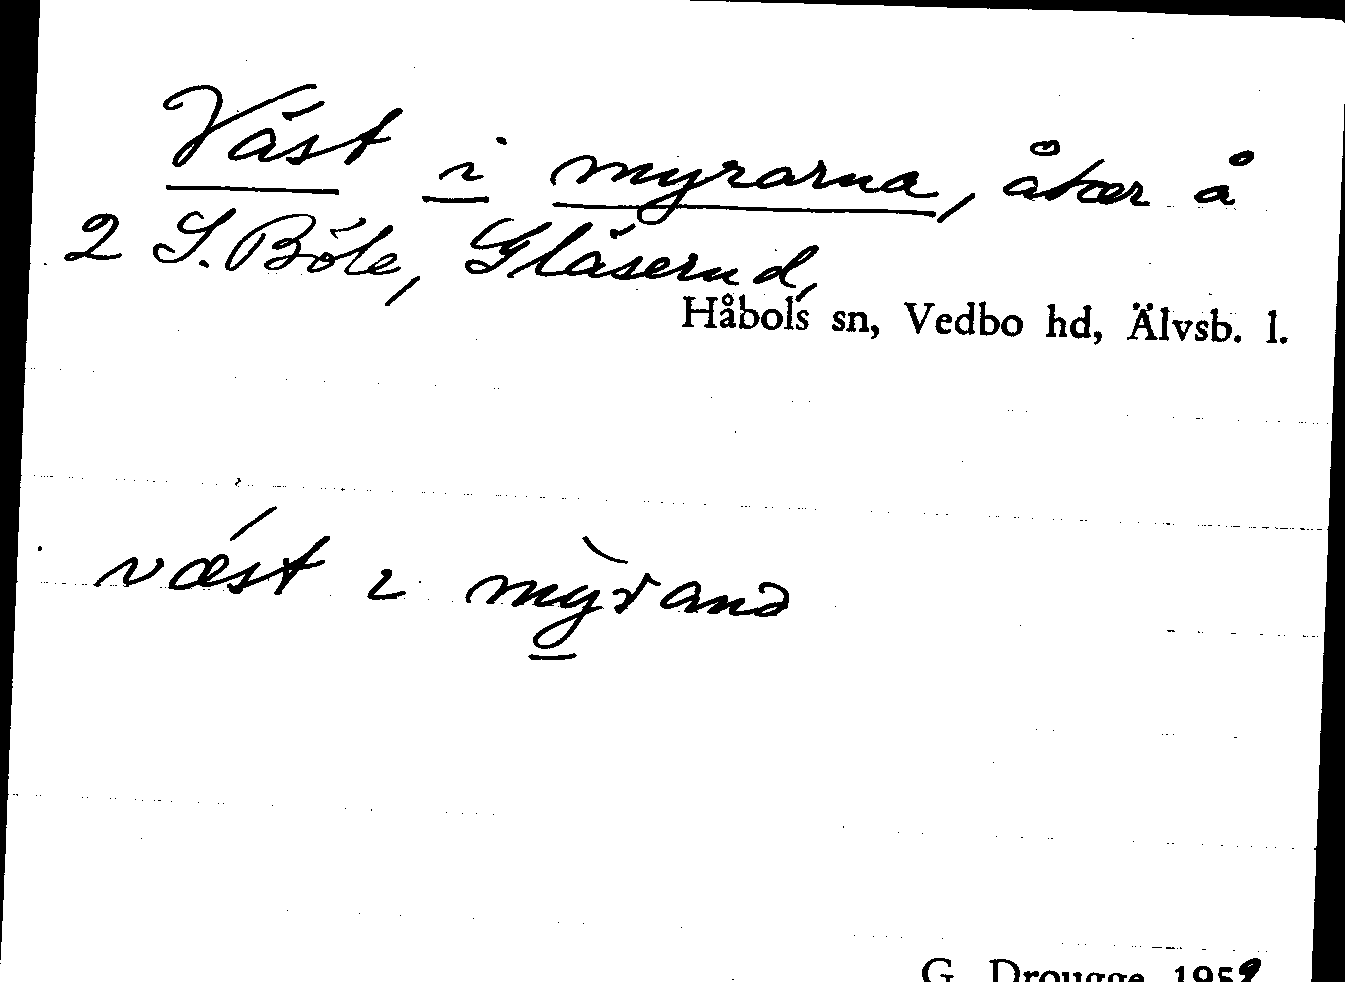 Väst i myrarna, åker å
2 S. Böle, Gläserud,
Håbols sn, Vedbo hd, Älvsb. l.
væ´st ɩ mỳranə
G. Drougge 1959